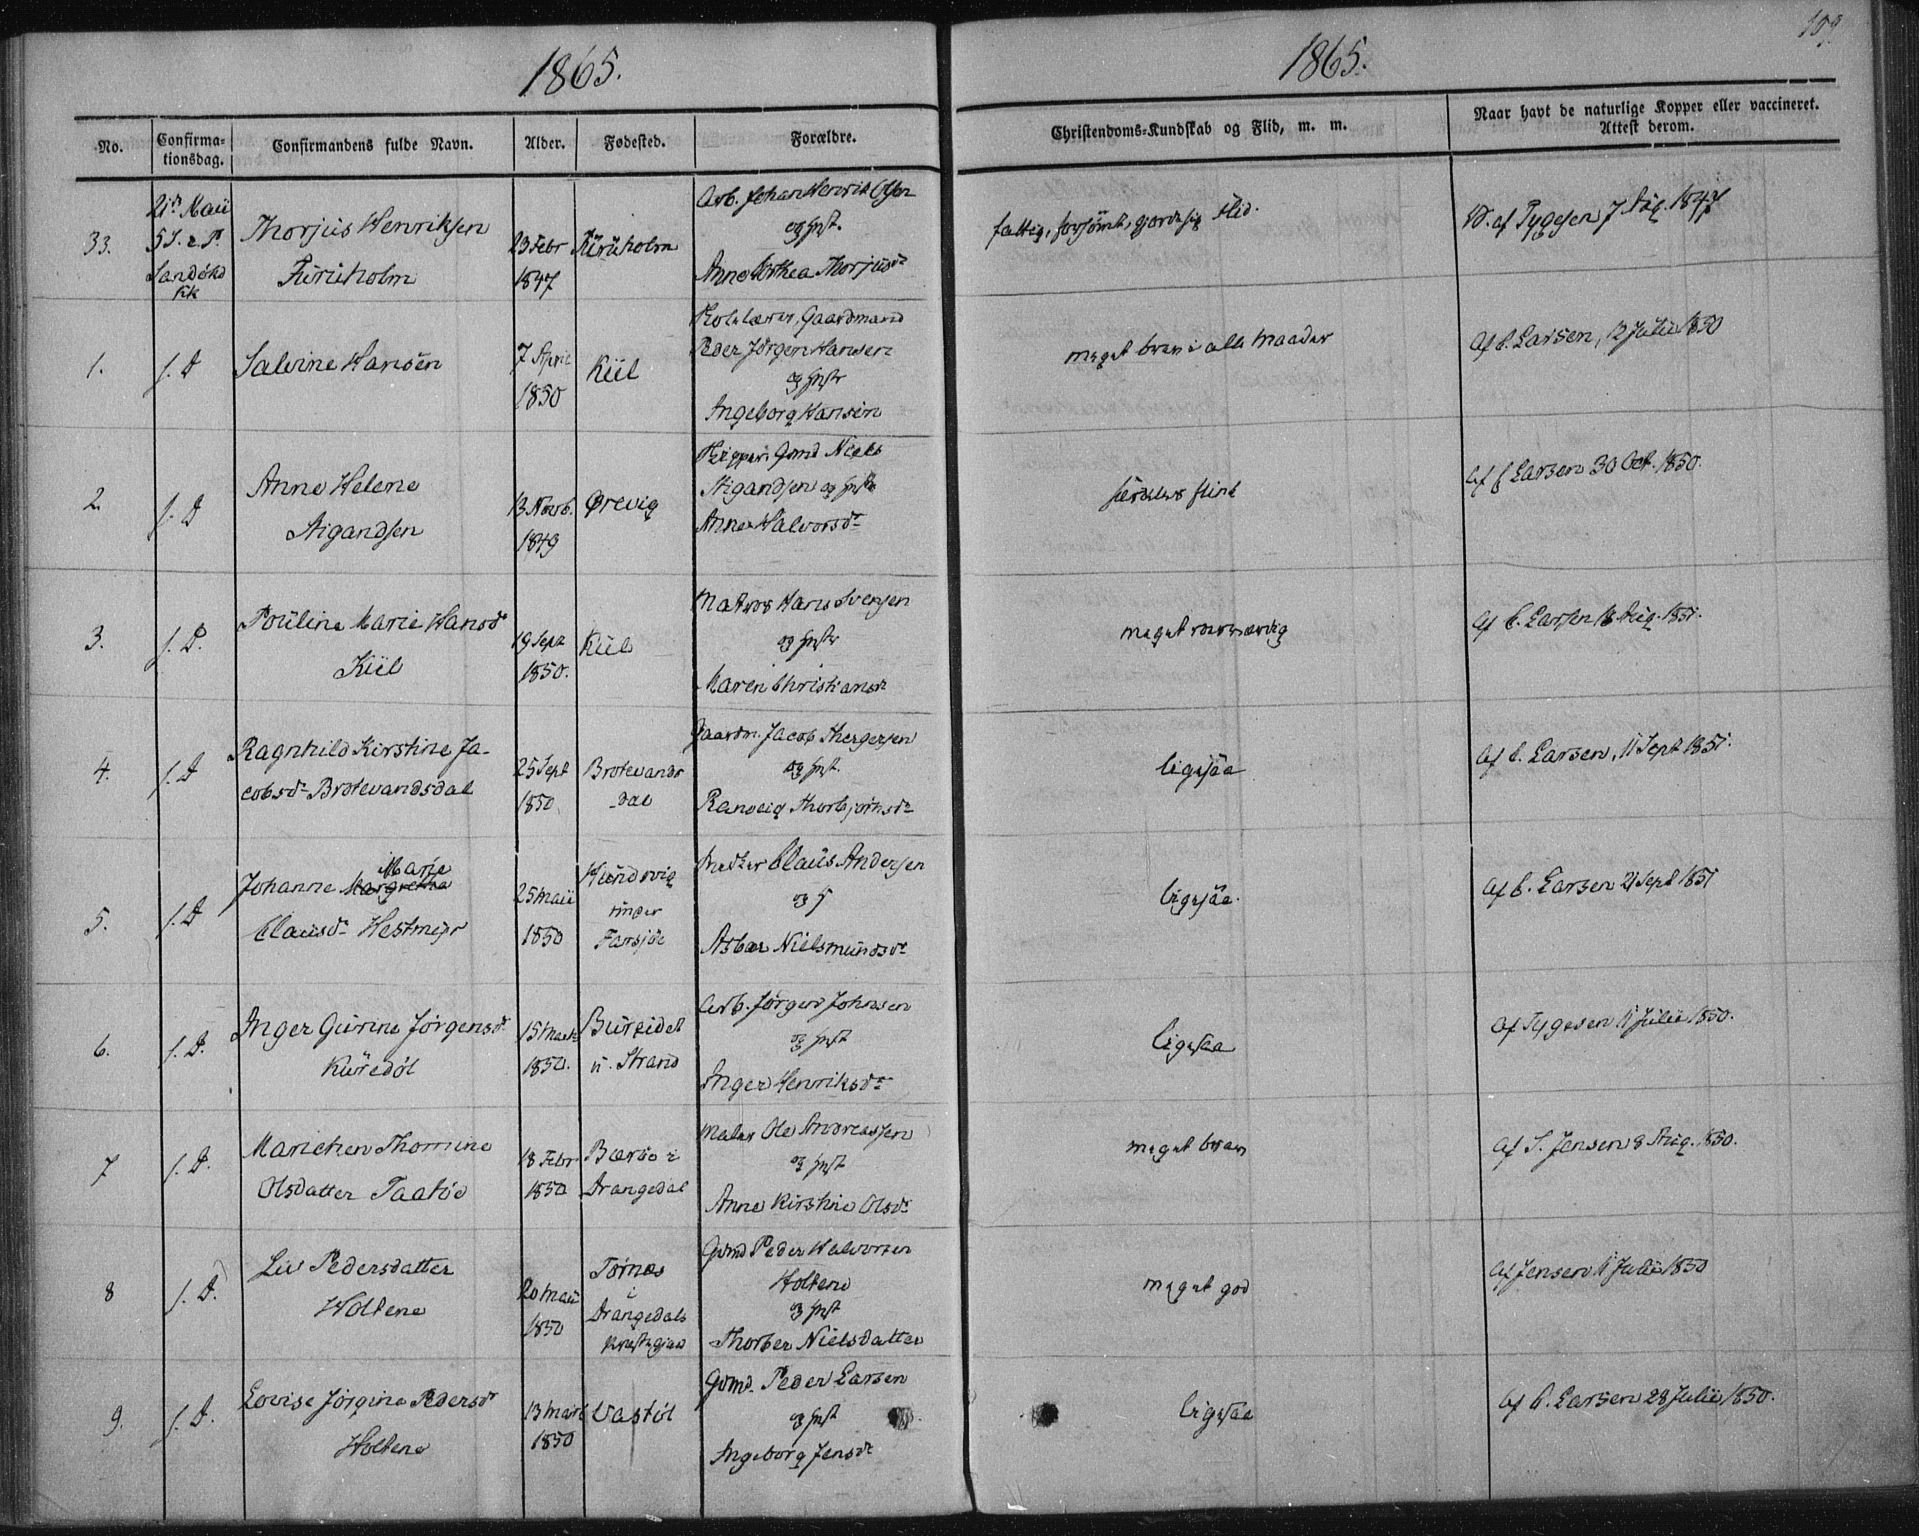 1865.
1865.
109.
No.
Confirma-
tionsdag.
Confirmandens fulde Navn.
Alder.
Fødested.
Forældre.
Christendoms-Kundskab og Flid, m. m.
Naar havt de naturlige Kopper eller vaccineret.
Attest derom.
33.
21de Maii
5 S. e. P.
Sandøkd
Kk
Thorjus Henriksen
Furuholm
23 Febr
1847
Furuholm
Arb. Johan Henrik Olsen
og Hust.
Anne Dorthea Thorjusdr
fattig, forsømt, gjorde sig Flid.
V. af Tygesen 7 Aug. 1847
1.
s. D
Salvine Hansen
7 April
1850
Kiil
Gaardmand
Peder Jørgen Hansen
og Hustr
Ingeborg Hansen
meget brav i alle Maader
Af C. Larsen, 12 Julii 1850
2.
s. D
Anne Helene
Aigandsen
13 Novb.
1849
Ørevig
Skipper, Gmd Niels
Aigandsen og Hustr
Anne Halvorsdr
særdeles flink
Af C Larsen 30 Oct. 1850.
3.
s. D.
Pouline Marie Hansdr
Kiil
19 Sept
1850.
Kiil
Matros Hans Svensen
og Hustr
Maren Christiansdr
meget roesværdig
Af C. Larsen 18 Aug. 1851.
4.
s. D
Ragnhild Kirstine Ja-
cobsdr Brotevandsdal
25 Sept
1850
Brotevands
dal
Gaardm. Jacob Thergersen
og Hust.
Ranveig Thorbjørnsdr
ligesaa
Af C. Larsen, 11 Sept 1851.
5.
s. D
Marie
Johanne Margrethe
Clausdr Hestmyr
25 Maii
1850
Hundsvig
under
Farsjøe
Claus Andersen
og H
Asber Nielsmundsdr
ligesaa.
Af C. Larsen 21 Sept 1851
6.
s. D.
Inger Gurine Jørgensdr
Kuredøl
15 Marts
1850.
Bureidet
u. Strand
Arb. Jørgen Johnsen
og Hust
Inger Henriksdr
ligesaa
Af Tygesen 11 Julii 1850.
7
s. D.
Marichen Thomine
Olsdatter Taatøe
18 Febr
1850
Barøe i
Drangedal
Maler Ole Andreassen
og Hust
Anne Kirstine Olsdr
meget brav
Af S. Jensen 8 Aug. 1850.
8
s. D.
Liv Pedersdatter
Holtene
20 Maii
1850
Tørnes
i
Drangedals
Præstegjæld
Gmd Peder Halvorsen
Holtene
og Hust
Thorber Nielsdatter
meget god
Af Jensen 11 Julii 1850
9.
s. D.
Lovise Jørgine Pedersdr
Holtene
13 Mart
1850
Vastøl
Gmd. Peder Larsen
og Hust
Ingeborg Jensdr
ligesaa
Af C. Larsen 28 Julii 1850.